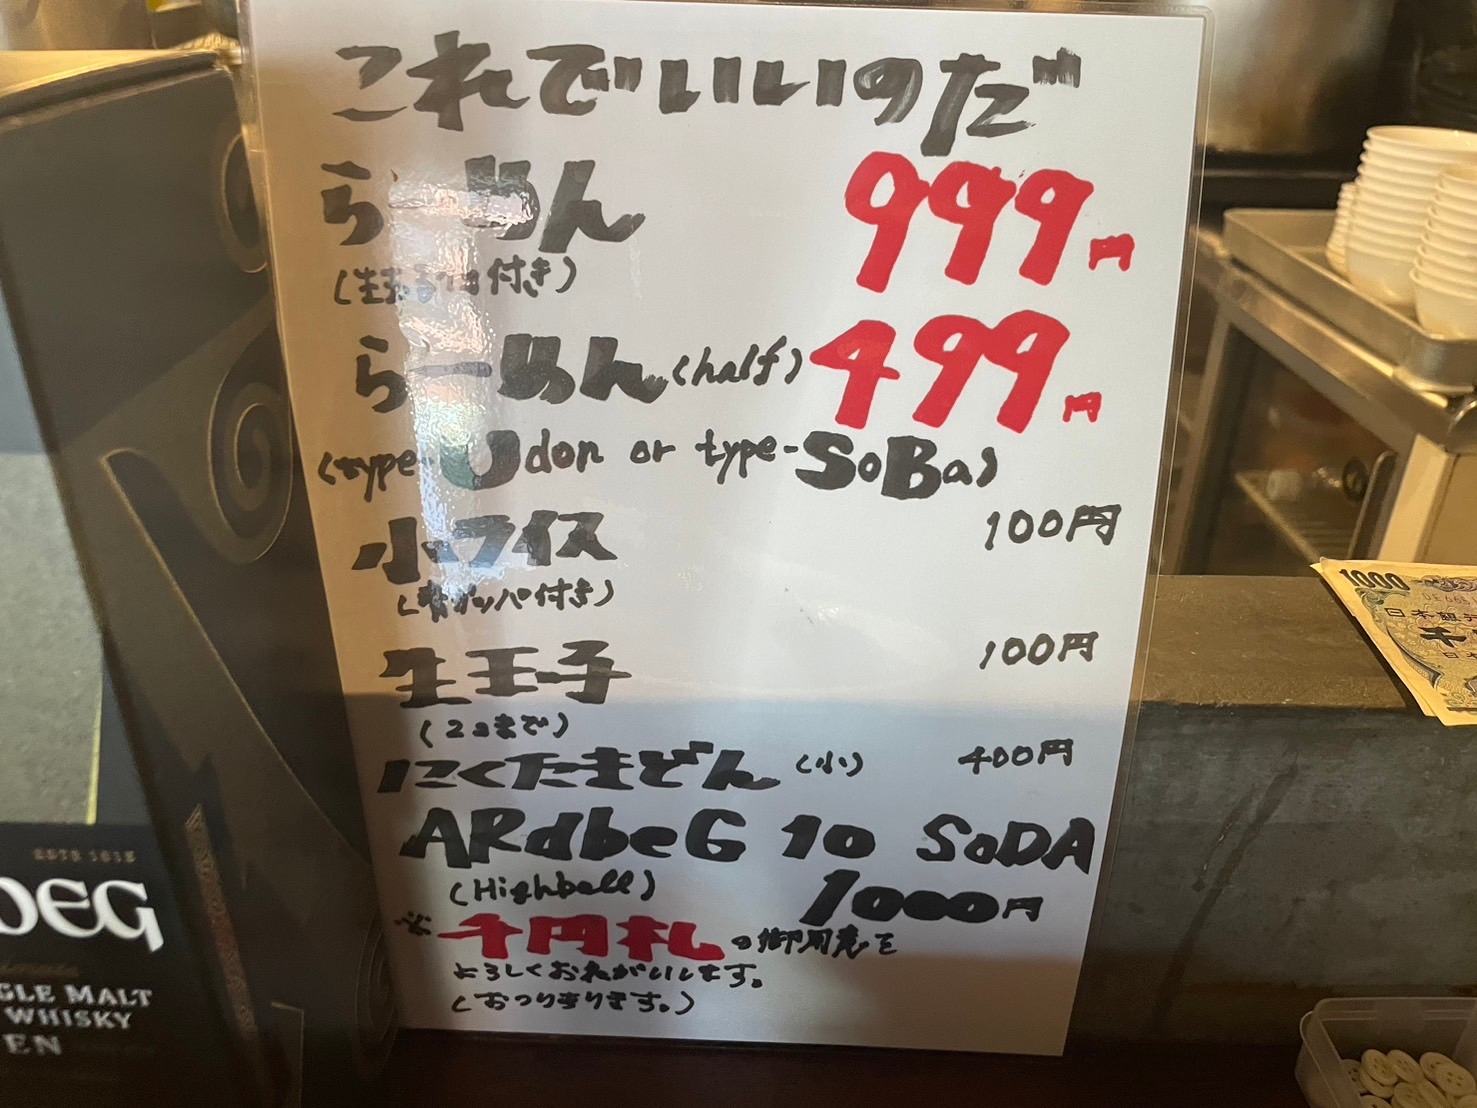 これでいいのだ
らーめん 999円
(生たまご付き)
らーめん(half) 499円
(type-Udon or type-SoBa)
小ライス 100円
(ガッパ付き)
生玉子 100円
(2コまで)
にくたまどん(小) 400円
ARdbeG 10 SoDA
(Highball) 1000円
※千円札の御用意を
よろしくおねがいします。
(おつりあります。)
ESTD 1815
DEG
GLE MALT
WHISKY
EN
1000
日本銀
千
日本